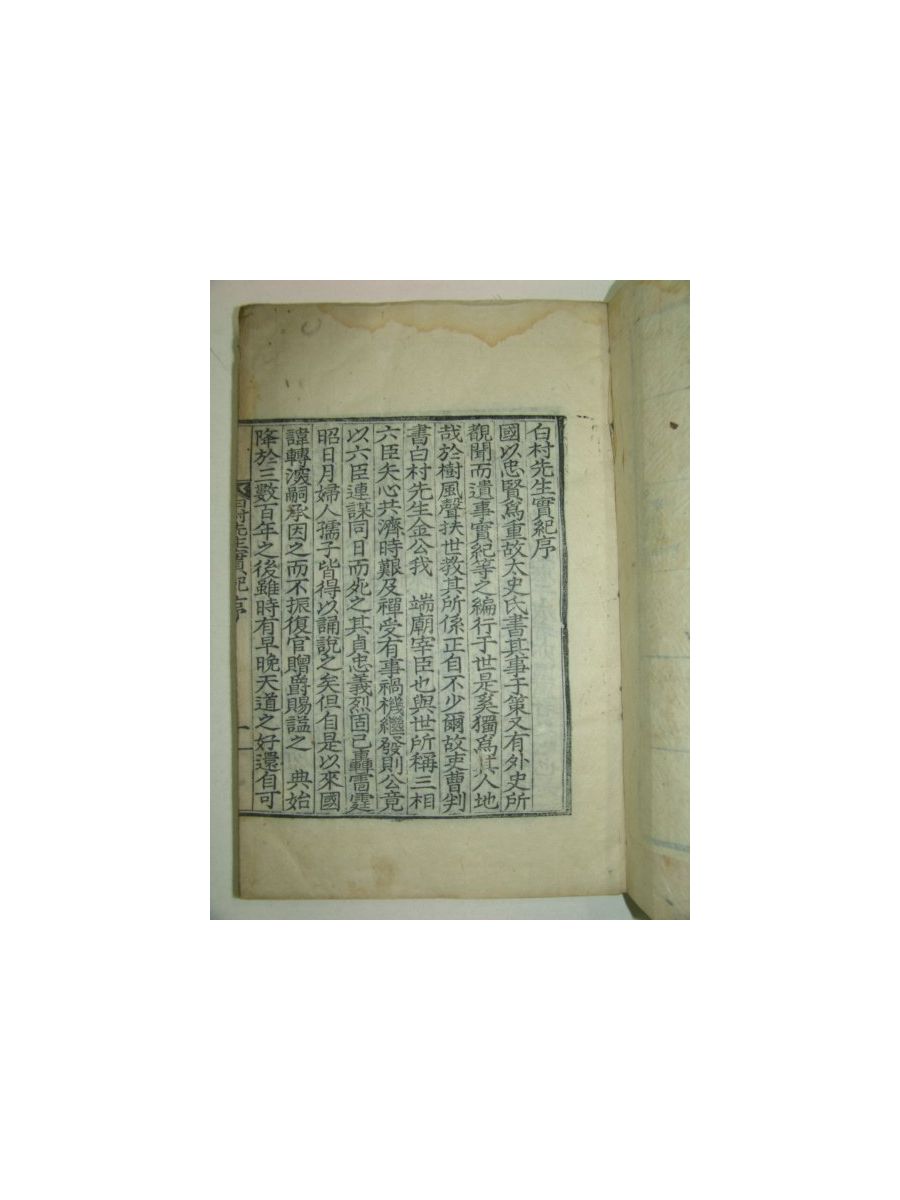 白村先生實紀序
國以忠賢爲重故太史氏書其事于策又有外史所
覩聞而遺事實紀等之編行于世是奚獨爲其人地
哉於樹風聲扶世敎其所係正自不少爾故吏曹判
書白村先生金公我 端廟宰臣也與世所稱三相
六臣矢心共濟時艱及禪受有事禍機繼發則公竟
以六臣連謀同日而死之其貞忠義烈固已轟雷霆
昭日月婦人孺子皆得以誦說之矣但自是以來國
諱轉深嗣承因之而不振復官贈爵賜謚之 典始
降於三數百年之後雖時有早晩天道之好還自可
白村先生實紀序 一